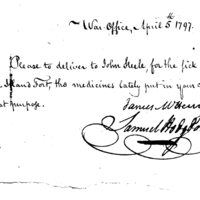 War Office, April 5th 1797.
Please to deliver to John Steele, for the sick
Island Fort, the medicines lately put in your
purpose.
James McHenry
Samuel Hodgdon